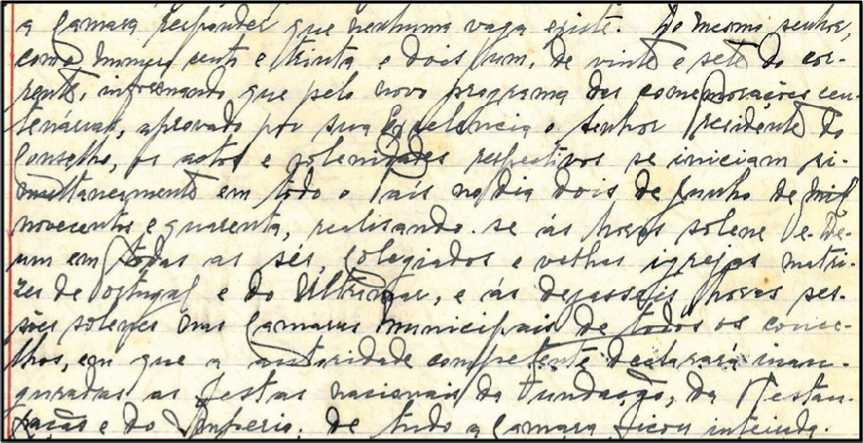 a Camara responder que nenhuma vaga existe. Do mesmo senhor,
com o numero cento e trinta e dois um, de vinte e sete do cor-
rente, informando que pelo novo programa das comemorações cen-
tenárias, aprovado por sua Excelencia o Senhor Presidente do
Conselho, os actos e solenidades respectivos se iniciam si-
multaneamente em todo o País no dia dois de Junho de mil
novecentos e quarenta, realisando-se ás horas solene Te-De-
um em todas as sés, colegiadas e velhas igrejas matri-
zes de Portugal e do Ultramar, e ás dezasseis horas ses-
sões solenes nas Camaras Municipais de todos os conce-
lhos, em que a autoridade competente declarará inau-
guradas as festas nacionais da Fundação, da Restau-
ração e do Imperio. de tudo a Camara ficou inteirada.